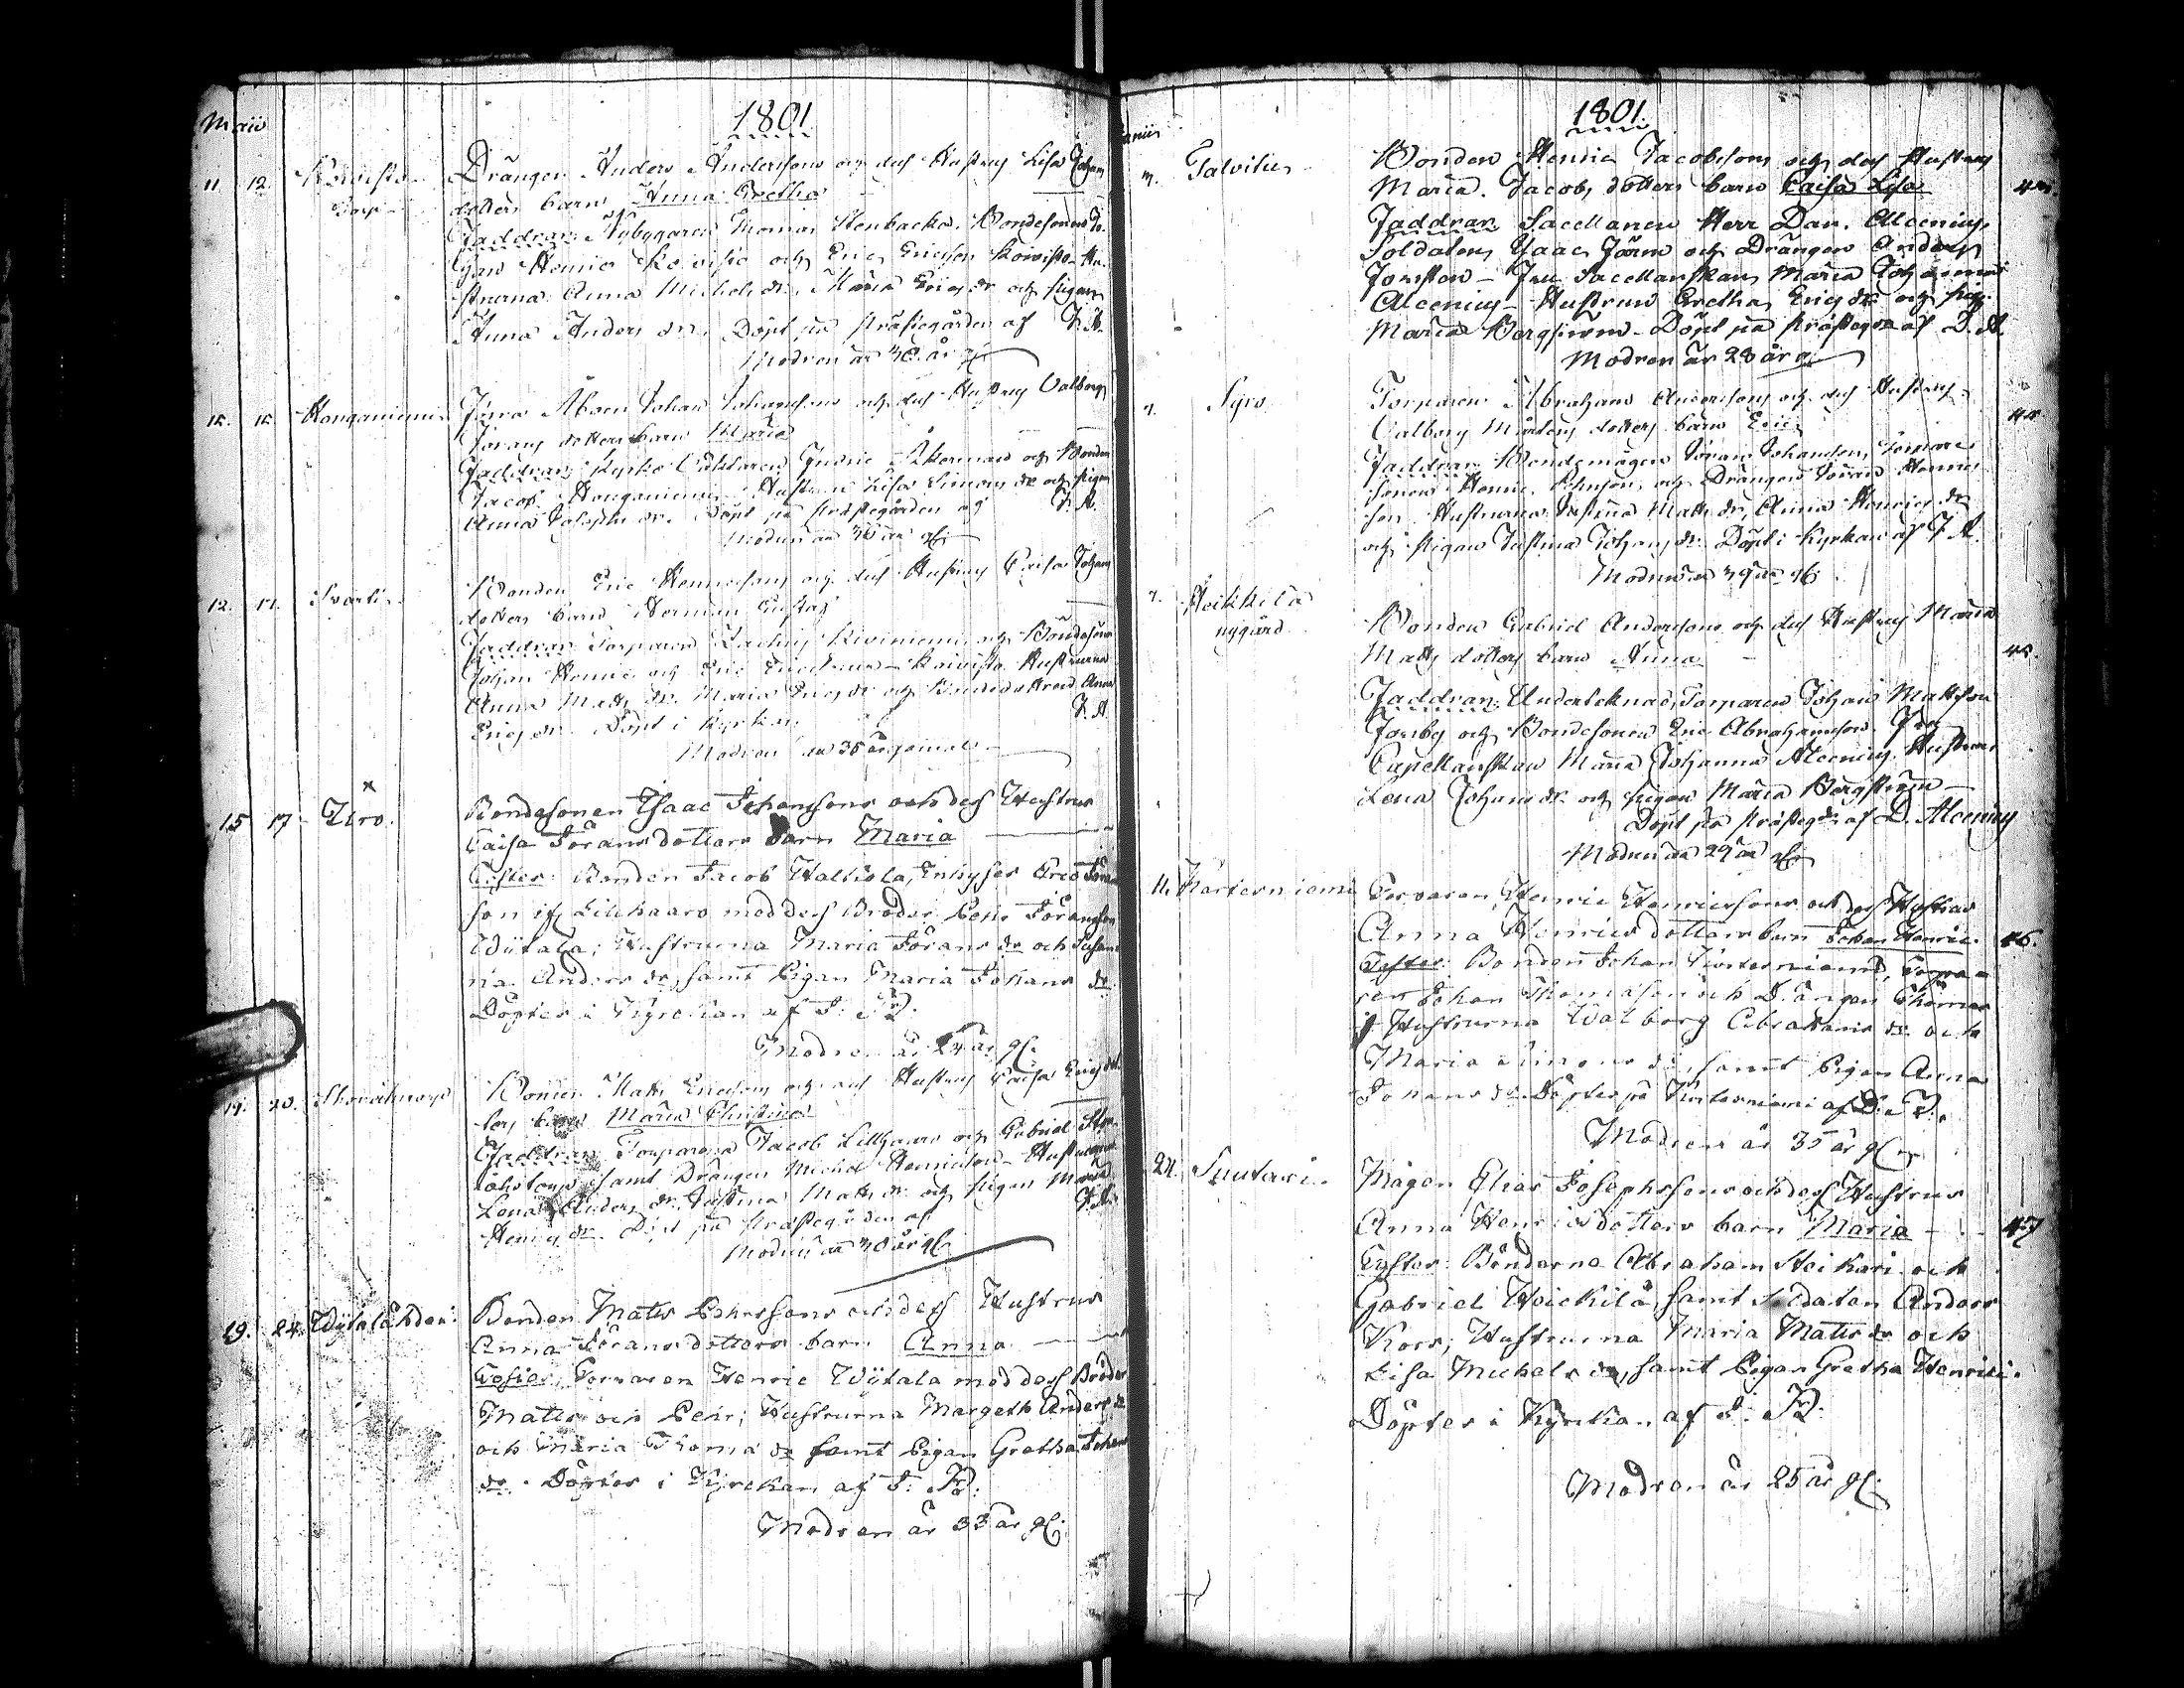 Maii
1801
11 12. Koivisto Drängen Anders Anderssons och des Hustrus Lisa Johans
Torp dotters barn Anna Gretha
Faddrar: Nybyggaren Thomas Stenbacka, Bondesonen Jo-
han Henric Koivisto och Eric Ericsson Koivisto Hu-
strurna Anna Michels dr, Maria Erics dr och pigan
Anna Anders dr. Döpt på prästegården af J. A.
Modren är 30 år gl.
12. 12. Honganiemi Johan Johanssons och des Hustrus Valborg
Jörans dotters barn Maria
Faddrar: Kyrko Åkerman och Bonden
Jacob Honganiemi Hustrun Lisa Simons dr och pigan
Anna Josephs dr. Döpt på prästegården af J. A.
Modren är 30 år gl.
12. 17. Svarti Bonden Eric Henricssons och des Hustrus Caisa Johans
dotters barn Herman Gustaf
Faddrar: Torparen Zachris Kiviniemi och Bondesonen
Johan Henric och Eric Ericsson Koivisto Hustrurna
Anna Matts dr. Maria Erics dr och Bondedottren Anna
Erics dr. Döpt i Kyrkan J. A.
Modren är 35 år gammal
15 17 Ziro. Bondesonen Isaac Johanssons och des Hustrus
Caisa Jörans dotters barn Maria
Testes: Bonden Jacob Halliola, Inhyses Jöran
son if Lillhaaro med des Broder Pehr Jöransson
Wijtala; Hustrurna Maria Jörans dr och Susan
na Anders dr, samt Pigan Maria Johans dr
Döptes i Kyrckan af J: R.
Modren är 24 år gl.
19. 20. Bonden Matts Ericsons och des Hustrus Caisa Erics dot
ters barn Maria Christina
Faddrar: Torparena Jacob Lillhaaro och Gabriel
samt Drängen Michel Henricsson Hustrurna
Lena Anders dr. Justina Matts dr och pigan Maria
Henrics dr. Döpt på prästegården af J. A.
Modren är 30 år gl.
19. 24. Wijtalä Bonden Matts Pehrssons och des Hustrus
Anna Jörans dotters barn Anna
Testes: Torparen Henric Wijtala med des Bröder
Matts och Pehr; Hustrurna Margeth Anders dr
och Maria Thomæ dr samt Pigan Gretha Johans
dr. Döptes i Kyrckan af J: R.
Modren är 33 år gl.
Junii
1801.
3. Talvitie Bonden Henric Jacobsons och des Hustrus
Maria Jacobs dotters barn Caisa Lisa
Faddrar: Sacellanen Herr Dan. Alcenius,
Soldaten Isaac Järn och Drängen Anders
Jonsson Fru Sacellanskan Maria Johanna
Alcenius Hustrun Gretha Erics dr och pig.
Maria Bergström Döpt på prästeg af D. A.
Modren är 28 år gl.
7. Syro Torparen Abraham Anderssons och des Hustrus
Valborg Mårtens dotters barn Eric
Faddrar: Bondemågen Jöran Johansson, Torpare
sonen Henric Johnson, och Drängen Jöran Henrics
son Hustrurna Justina Matts dr, Anna Henrics dr
och pigan Justina Johans dr. Döpt i Kyrkan af J. A.
Modren är 39 år gl.
7. Heikkilä Bonden Gabriel Anderssons och des Hustrus Maria
nygård Matts dotters barn Anna
Faddrar: Undertecknad, Torparen Johan Mattsson
Forsby och Bondesonen Eric Abrahamsson. Fru
Capellanskan Maria Johanna Alcenius. Hustrun
Lena Johans dr och pigan Maria Bergström
Döpt på prästeg af D. Alcenius
Modren är 29 år gl.
11. Karterniemi Torparen Henric Henricssons och des Hustrus
Anna Henrics dotters barn Johan Henric. 46.
Testes: Bonden Johan Karterniemi, Torpa-
ren Johan Thomasson och Drängen Thomas
Hustrurna Walborg Abrahams dr och
Maria Simons dr, samt Pigan Anna
Johans dr. Döptes på Karterniemi af D. A.
Modren är 35 år gl.
24. Suutari. Mågen Elias Josephssons och des Hustrus
Anna Henrics dotters barn Maria 47
Testes: Bönderna Abraham Heikari och
Gabriel Heickilä samt Soldaten Anders
Kors, Hustrurna Maria Matts dr och
Lisa Michels dr, samt Pigan Gretha Henrici.
Döptes i Kyrckan af J: R.
Modren är 25 år gl.